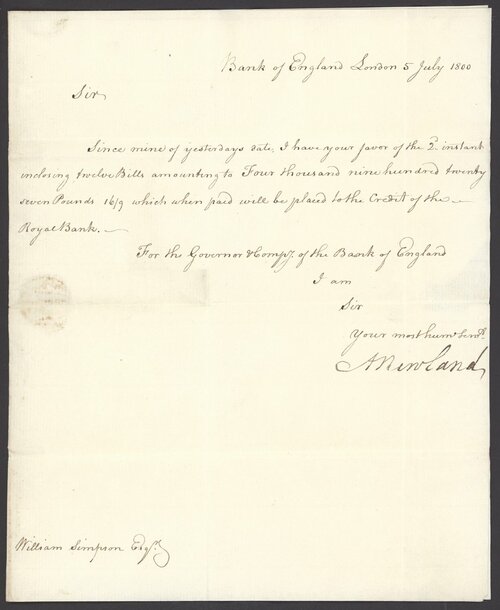 Bank of England London 5 July 1800
Sir,
Since mine of yesterdays date, I have your favor of the 2d. instant
inclosing twelve Bills amounting to Four thousand nine hundred twenty
seven Pounds 16/9 which when paid will be placed to the Credit of the
Royal Bank.
For the Governor & Compy. of the Bank of England
I am
Sir
Your most hume. Servt.
A Newland
William Simpson Esqr.